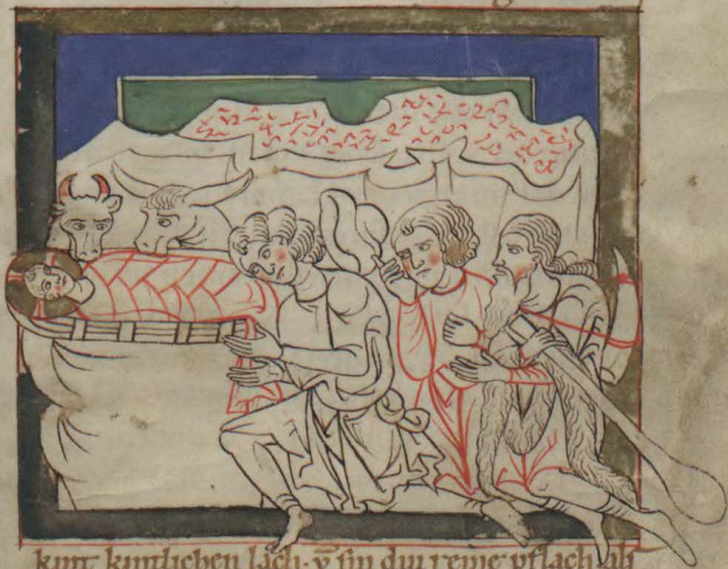 kint kintlichen lach · v̄ sin diu reine pflach ·